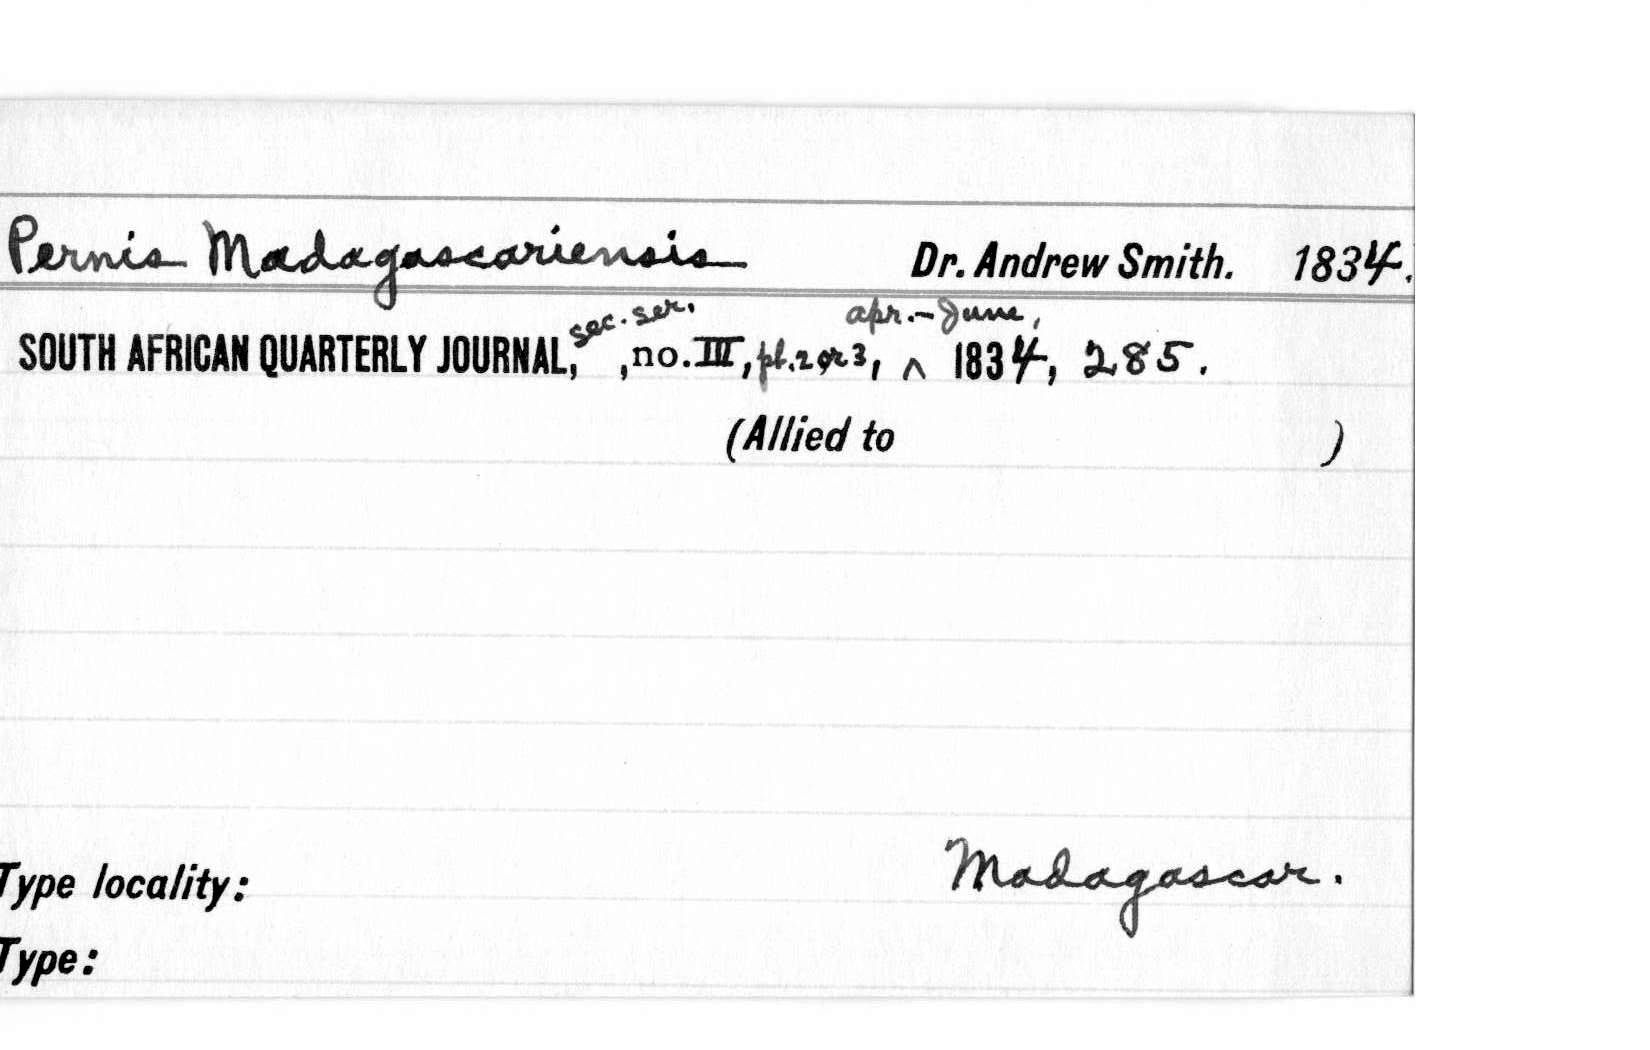 Pernis Madagascariensis Dr. Andrew Smith. 1834.
sec. ser. apr.-June,
SOUTH AFRICAN QUARTERLY JOURNAL, ,no. III, pt. 2 or 3, ^ 1834, 285.
(Allied to )
Type locality: Madagascar.
Type: